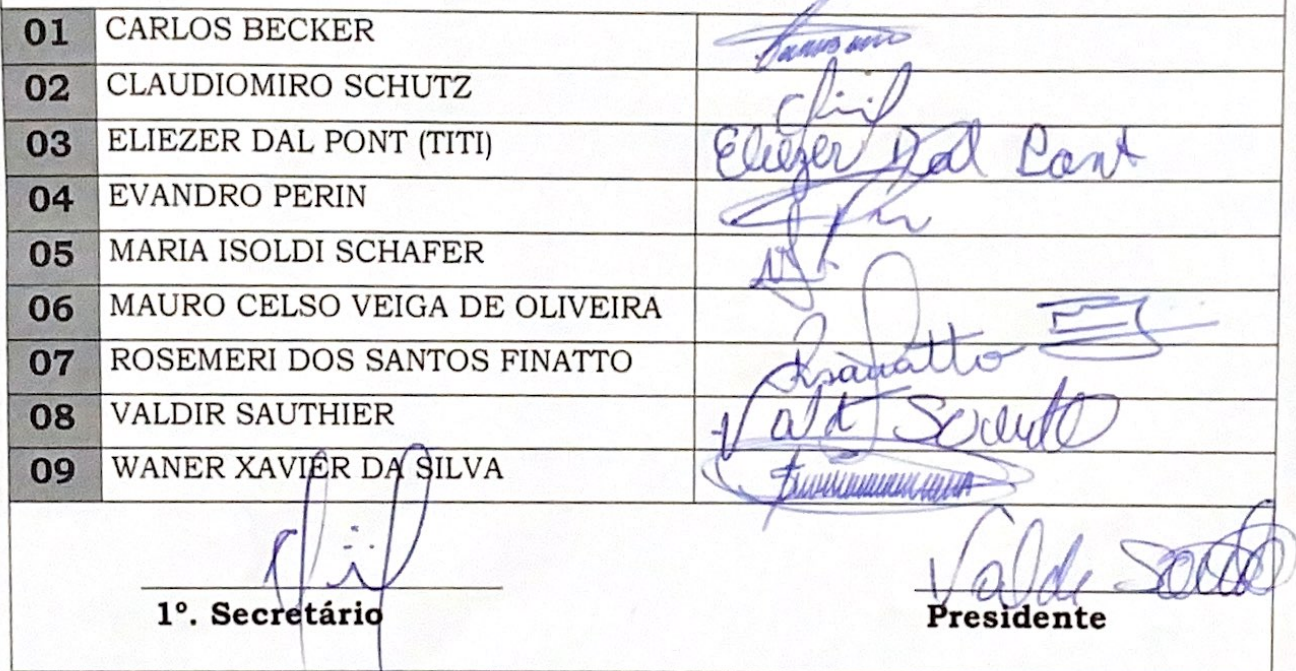 01 CARLOS BECKER
02 CLAUDIOMIRO SCHUTZ
03 ELIEZER DAL PONT (TITI) Eliezer Dal Pont
04 EVANDRO PERIN
05 MARIA ISOLDI SCHAFER
06 MAURO CELSO VEIGA DE OLIVEIRA
07 ROSEMERI DOS SANTOS FINATTO
08 VALDIR SAUTHIER
09 WANER XAVIER DA SILVA
1º. Secretário Presidente